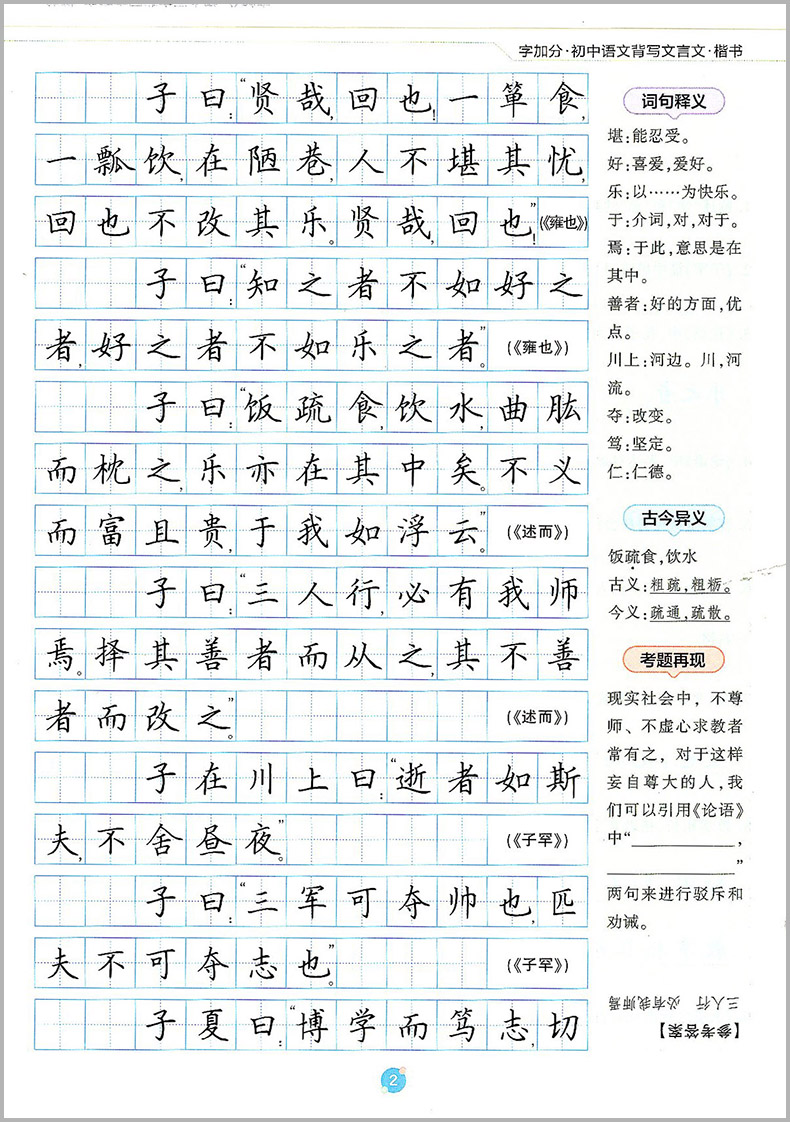 字加分·初中语文背写文言文·楷书
子曰:“贤哉,回也!一箪食,
一瓢饮,在陋巷,人不堪其忧,
回也不改其乐。贤哉,回也!”(《雍也》)
子曰:“知之者不如好之
者,好之者不如乐之者。”(《雍也》)
子曰:“饭疏食,饮水,曲肱
而枕之,乐亦在其中矣。不义
而富且贵,于我如浮云。”(《述而》)
子曰:“三人行,必有我师
焉。择其善者而从之,其不善
者而改之。”(《述而》)
子在川上曰:“逝者如斯
夫,不舍昼夜。”(《子罕》)
子曰:“三军可夺帅也,匹
夫不可夺志也。”(《子罕》)
子夏曰:“博学而笃志,切
词句释义
堪:能忍受。
好:喜爱,爱好。
乐:以……为快乐。
于:介词,对,对于。
焉:于此,意思是在
其中。
善者:好的方面,优
点。
川上:河边。川,河
流。
夺:改变。
笃:坚定。
仁:仁德。
古今异义
饭疏食,饮水
古义:粗疏,粗粝。
今义:疏通,疏散。
考题再现
现实社会中,不尊
师、不虚心求教者
常有之,对于这样
妄自尊大的人,我
们可以引用《论语》
中“____________,
________________”
两句来进行驳斥和
劝诫。
【参考答案】
三人行 必有我师焉
2